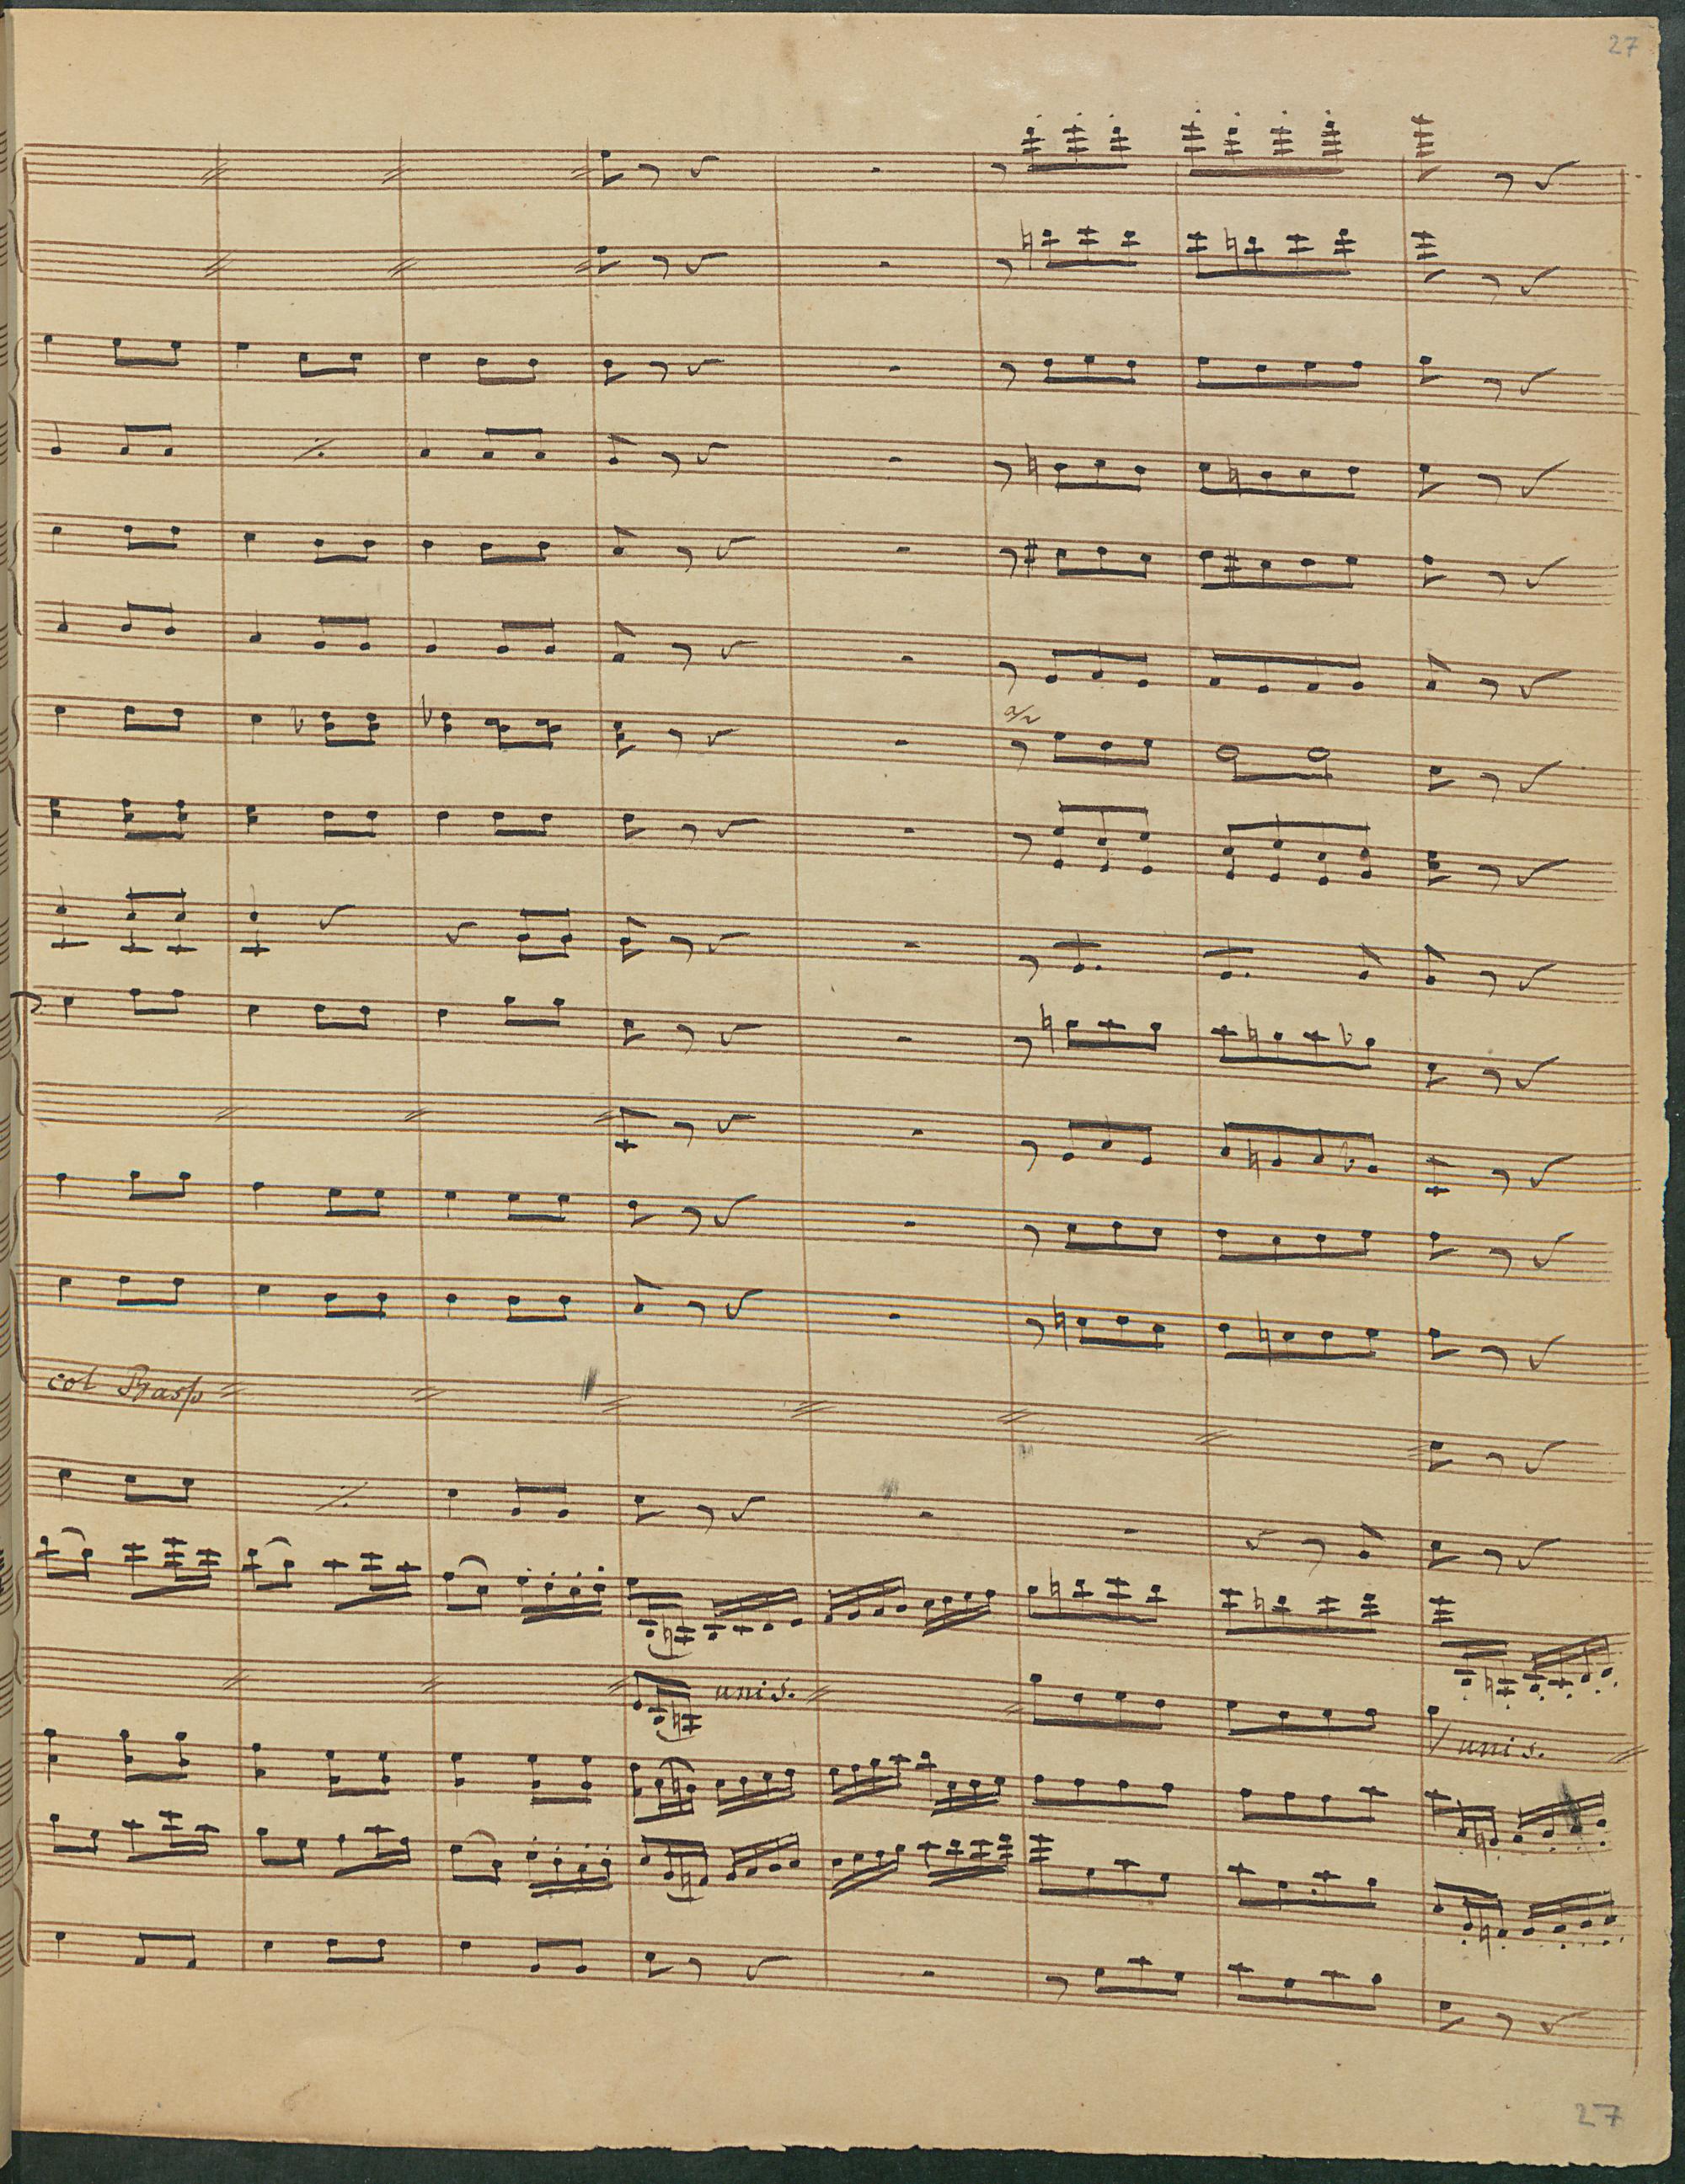 27
a/2
col Basso
unis.
unis.
27